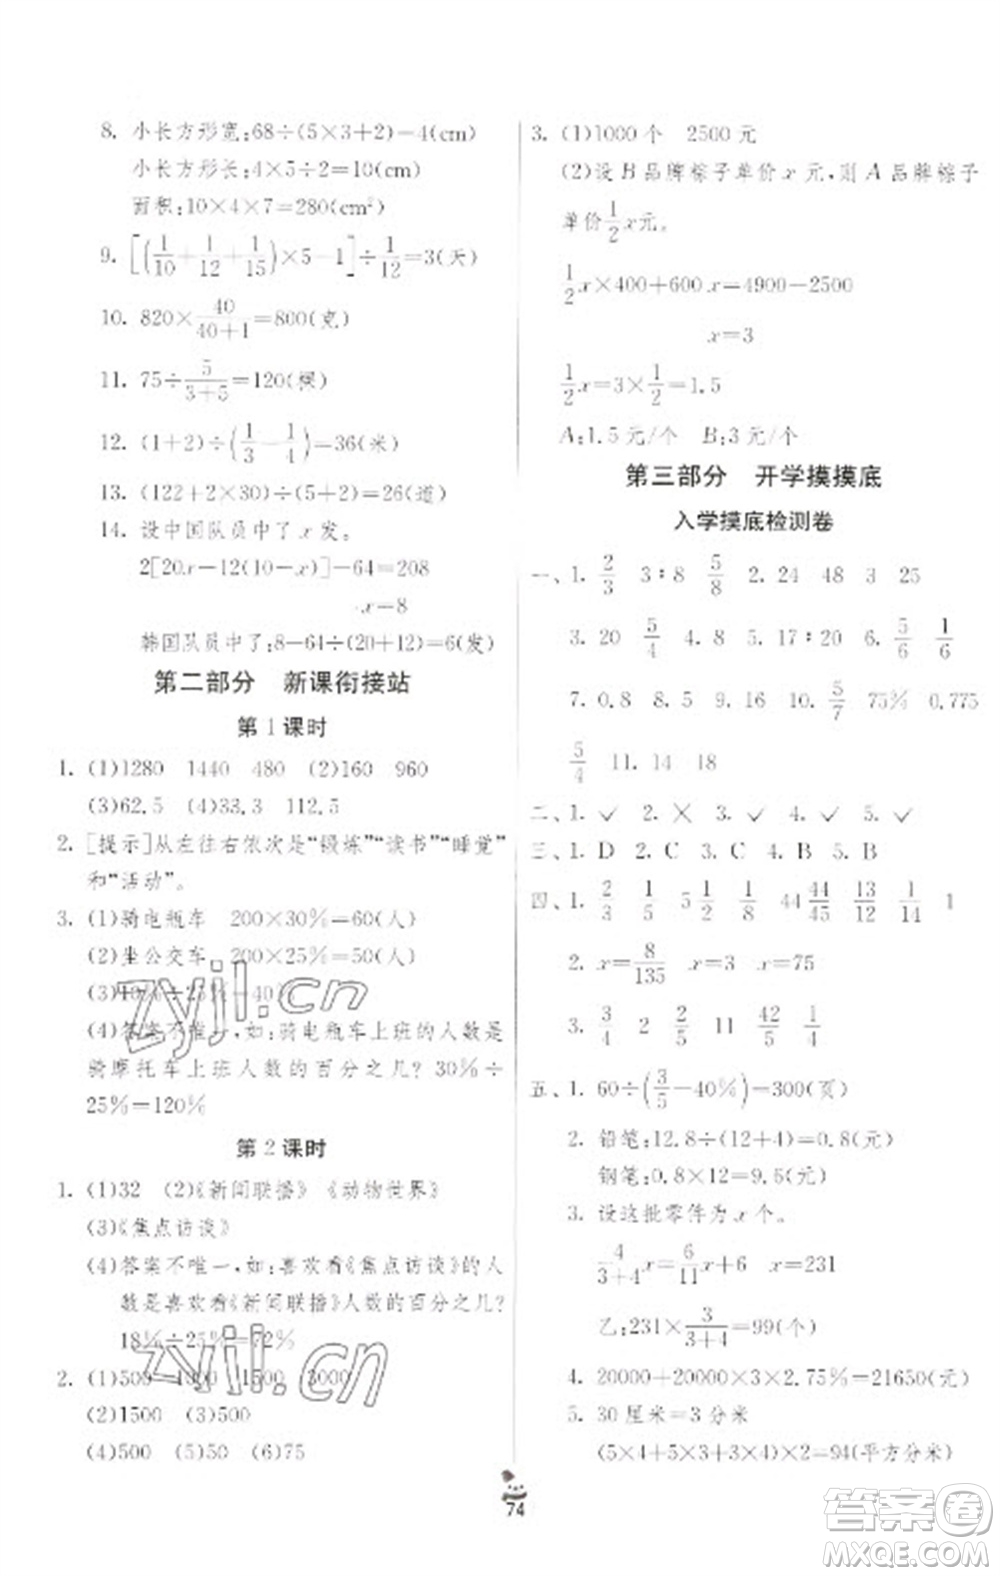 8. 小长方形宽:68÷(5×3+2)=4(cm)
小长方形长:4×5÷2=10(cm)
面积:10×4×7=280(cm²)
9. [(1/10+1/12+1/15)×5-1]÷1/12=3(天)
10. 820×40/(40+1)=800(克)
11. 75÷5/(3+5)=120(棵)
12. (1+2)÷(1/3-1/4)=36(米)
13. (122+2×30)÷(5+2)=26(道)
14. 设中国队员中了x发。
2[20x-12(10-x)]-64=208
x=8
韩国队员中了:8-64÷(20+12)=6(发)
第二部分 新课衔接站
第1课时
1. (1)1280 1440 480 (2)160 960
(3)62.5 (4)33.3 112.5
2. [提示]从左往右依次是“锻炼”“读书”“睡觉”
和“活动”。
3. (1)骑电瓶车 200×30%=60(人)
(2)坐公交车 200×25%=50(人)
(3)10%÷25%=40%
(4)答案不唯一,如:骑电瓶车上班的人数是
骑摩托车上班人数的百分之几? 30%÷
25%=120%
第2课时
1. (1)32 (2)《新闻联播》 《动物世界》
(3)《焦点访谈》
(4)答案不唯一,如:喜欢看《焦点访谈》的人
数是喜欢看《新闻联播》人数的百分之几?
18%÷25%=72%
2. (1)500 1000 1500 3000
(2)1500 (3)500
(4)500 (5)500 (6)75
3. (1)1000个 2500元
(2)设B品牌粽子单价x元,则A品牌粽子
单价1/2x元。
1/2x×400+600x=4900-2500
x=3
1/2x=3×1/2=1.5
A:1.5元/个 B:3元/个
第三部分 开学摸摸底
入学摸底检测卷
一、1. 2/3 3:8 5/8 2. 24 48 3 25
3. 20 5/4 4. 8 5. 17:20 6. 5/6 1/6
7. 0.8 8. 5 9. 16 10. 5/7 75% 0.775
5/4 11. 14 18
二、1. ✓ 2. ✕ 3. ✓ 4. ✓ 5. ✓
三、1. D 2. C 3. C 4. B 5. B
四、1. 2/3 1/5 5/2 3/8 24 44/45 13/12 1/14 1
2. x=8/135 x=40 x=75
3. 3/4 2 2/5 11 42/5 1/2
五、1. 60÷(3/5-40%)=300(页)
2. 铅笔:12.8÷(12+4)=0.8(元)
钢笔:0.8×12=9.6(元)
3. 设这批零件为x个。
4/(3+4)x=6/11x+6 x=231
乙:231×3/(3+4)=99(个)
4. 20000+20000×3×2.75%=21650(元)
5. 30厘米=3分米
(5×4+5×3+4×3)×2=94(平方分米)
74
zyjl.cn
zyjl.cn
答案卷
MXQE.COM